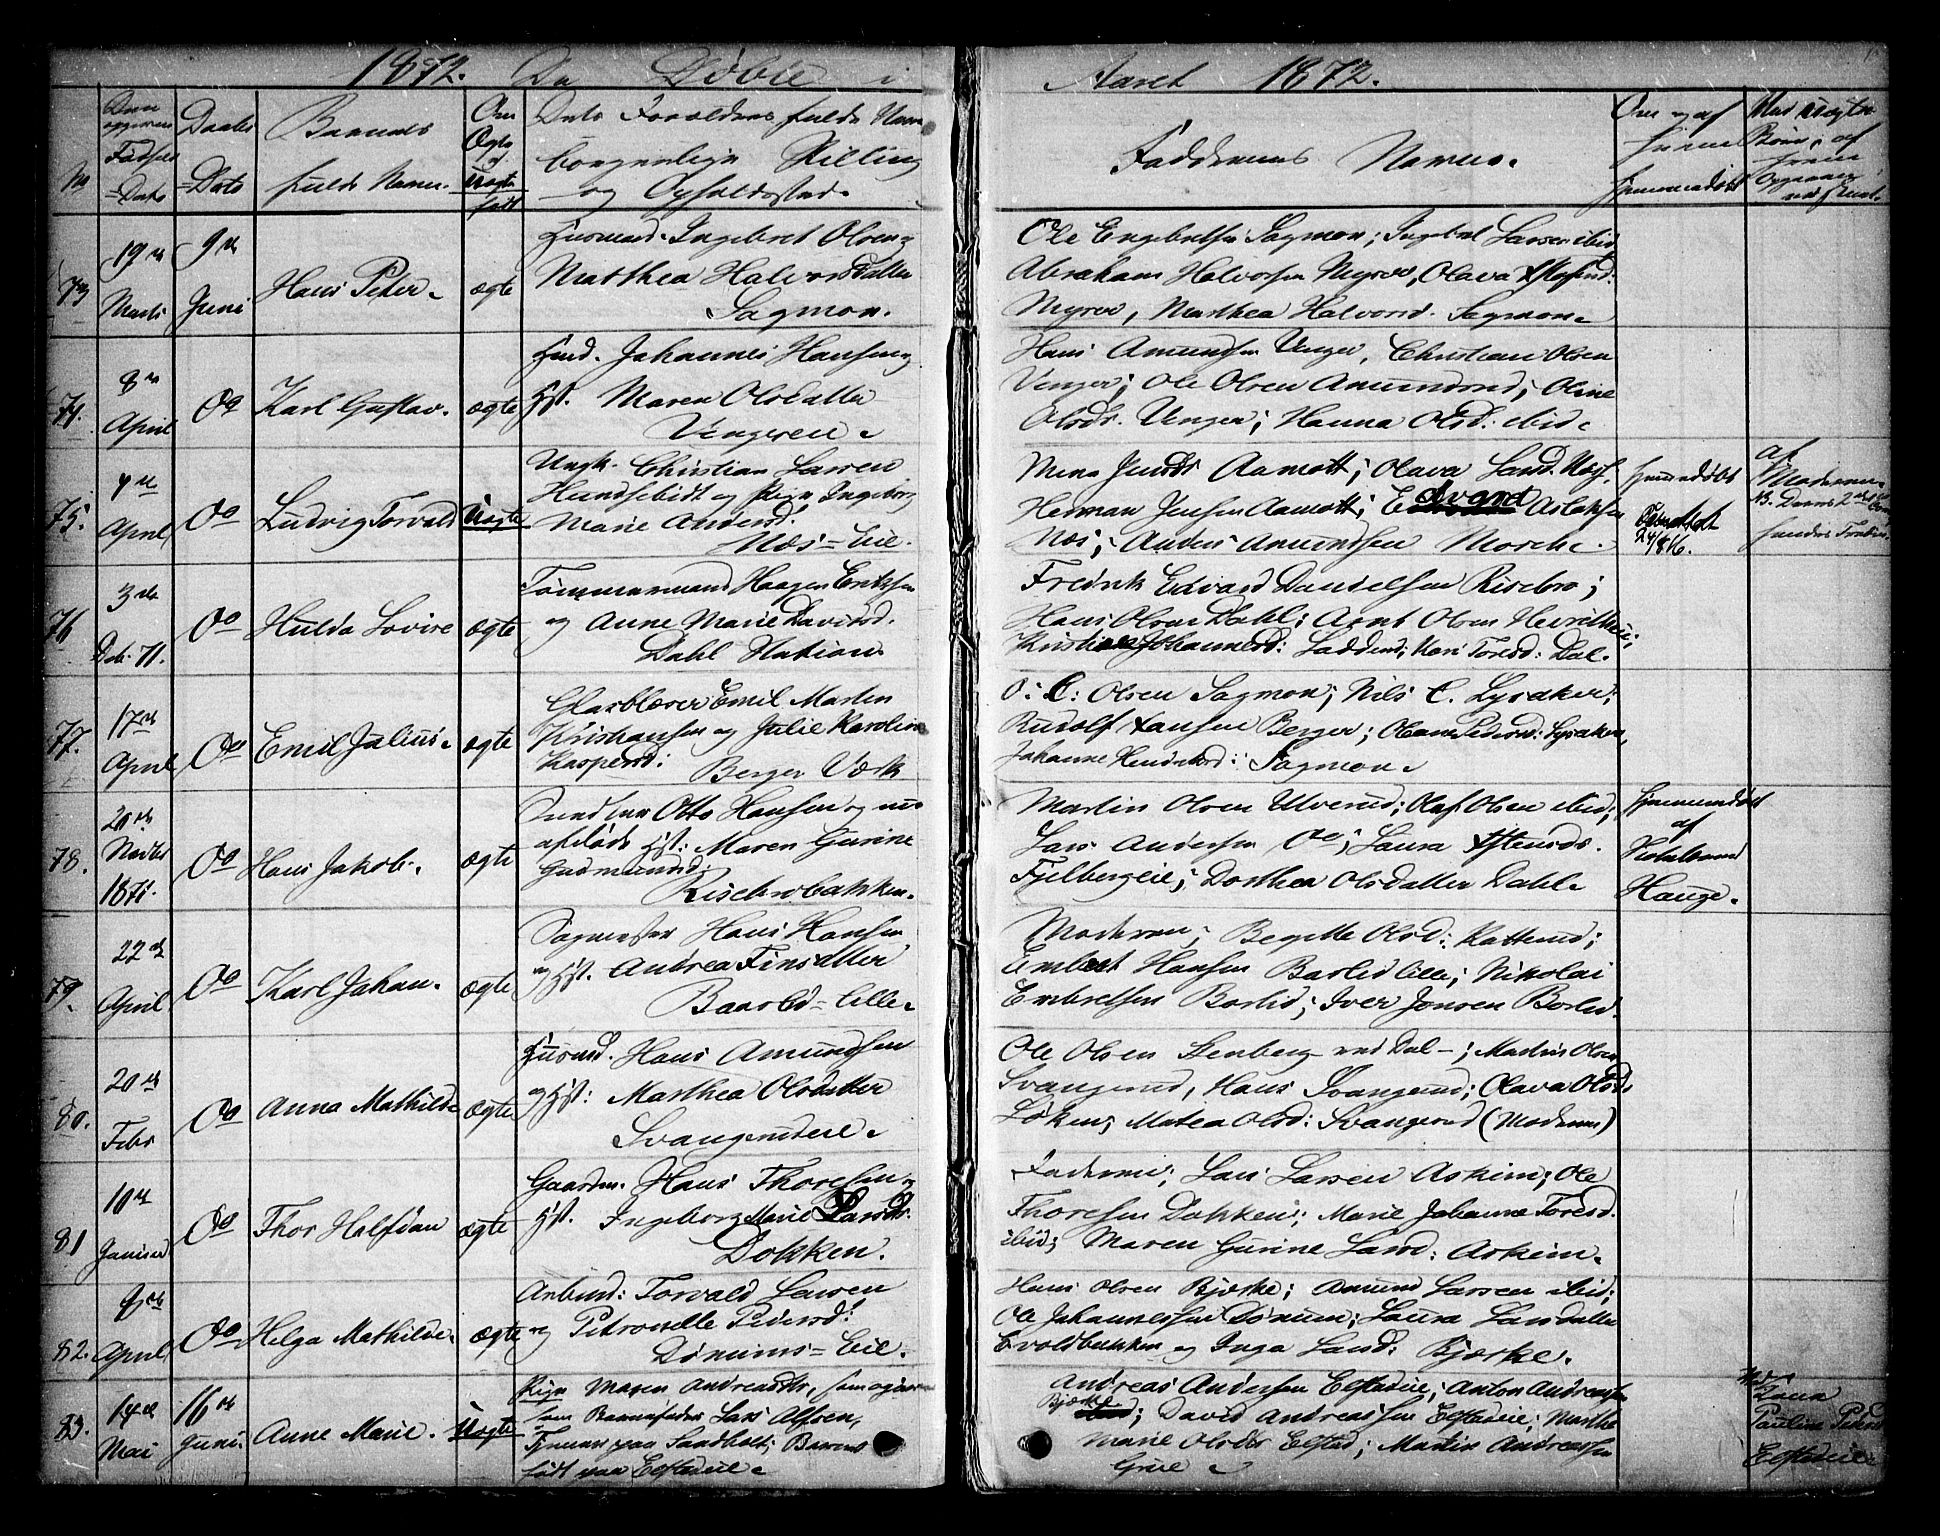 1872. De Døbte i Aaret 1872.
No
Den opgivne Fødsels = Dato
Daabs = Dato
Barnets fulde Navn.
Om Ægte el. Uægte født
Dets Forældres fulde Navn
borgerlige Stilling
og Opholdssted.
Faddernes Navne.
Om og af hvem hjemmedøbt
73
19de Marts
9de Juni
Hans Peter.
ægte
Husmd. Ingebret Olsen og
Matthea Halvorsdatter
Sagmoen.
Ole Engebretsen Sagmoen; Ingebret Larsen ibid
Abraham Halvorsen Myrer, Olava
Myrer, Marthea Halvorsd. Sagmoen.
74.
8de April
Do
Karl Gustav.
ægte
Johannes Hansen og
Hst. Maren Olsdatter
Vengeren.
Hans Amundsen Venger, Christian Olsen
Venger; Ole Olsen Amundrud; Oline
Olsdr. Venger; Hanna Olsd. ibid.
75.
4de April
Do
Ludvig Torvald
Uægte
Ungk. Christian Larsen
og Pige Ingeborg
Marie Andersd.
Næs = Eie.
Aamott; Olava Larsd.
Herman Jensen Aamott; Edvard Aslaksen
Næs; Anders Amundsen
hjemmedøbt
af
Moderens
76
3de
Decb. 71.
Do
Hulda Lovise
ægte
Tømmermand Haagen Eriksen
og Anne Marie Davidsd.
Dahl Station
Fredrik Edvard Danielsen Risebro;
Hans Olsen Dahl; Arnt Olsen
Johannesd: Kari Toresd: Dal.
77.
17de April
Do
Emil Julius.
ægte
Glasblæser Emil Martin
Kristiansen og Julie Karoline
Kaspersd:
Berger Værk
O. C. Olsen Sagmoen; Nils C. Lysaker;
Rudolf Hansen Berger; Oleane Pedersd: Lysaker,
Johanne Sagmoen.
78.
20de
1871.
Do
Hans Jakob.
ægte
Otto Hansen og nu
afdøde Hst: Maren Gurine
Gudmundsd:
Risebrobakken.
Martin Olsen Ulverud; Olaf Olsen ibid;
Lars Andersen Do; Laura
Fjelbergeie; Dorthea Olsdatter Dahl.
hjemmedøbt
af
Hauge.
79.
22de April
Do
Karl Johan.
ægte
Sagmester Hans Hansen
og Hst. Andrea Finsdatter
Baarlid = Lille.
Moderen; Begitte Olsd: Katterud;
Embret Hansen Barlid lille; Nikolai
Embretsen Borlid; Iver Jonsen Borlid.
80.
20de Febr
Do
Anna Mathilde
ægte
Husmd. Hans Amundsen
og Hst: Marthea Olsdatter
Svangerudeie.
Ole Olsen Stenberg ved Dal -; Martin Olsen
Svangerud, Hans Svangerud; Olava Olsdr
Løken; Matea Olsd: Svangerud (Moderen)
81
10de Januar
Do
Thor Halfdan
ægte
Gaardm. Hans Thoresen og
Hst. Ingeborg Marie Larsdr.
Dokken.
Faderen; Lars Larsen Askim; Ole
Thoresen Dokken; Marie Johanne Toresd.
ibid; Maren Gurine Larsd: Askim.
82.
April
Do
Helga Mathilde.
ægte
Arbmd: Torvald Larsen
og Petronelle Pedersd:
Dønnums = Eie.
Hans Olsen Bjørke; Amund Larsen ibid;
Ole Johannessen Dønnum; Laura Larsdatter
Evoldbakken og Inga Larsd: Bjørke.
83.
14de Mai
16de Juni
Anne Marie.
Uægte
Pige Maren Andreasdtr, som opgiver
som Barnefader Lars Alfsen,
Tjener paa Sandholt; Barnet
født paa Elstadeie.
Andreas Andersen Elstadeie; Anton Andreassen
Bjørke; David Andreassen Elstadeie; Marthe
Marie Olsdr Elstad; Martin Andreassen
Elstadeie